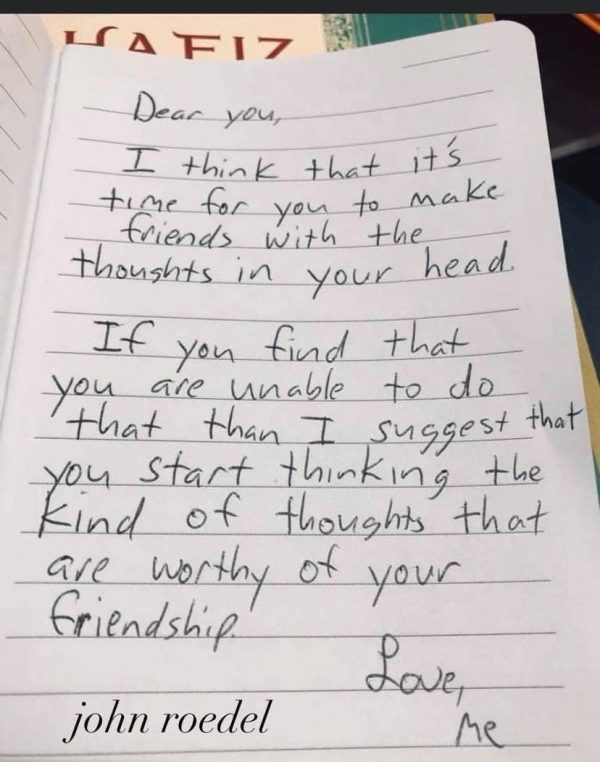 HAFIZ
Dear you,
I think that it's
time for you to make
friends with the
thoughts in your head.
If you find that
you are unable to do
that than I suggest that
you start thinking the
kind of thoughts that
are worthy of your
friendship.
Love,
Me
john roedel